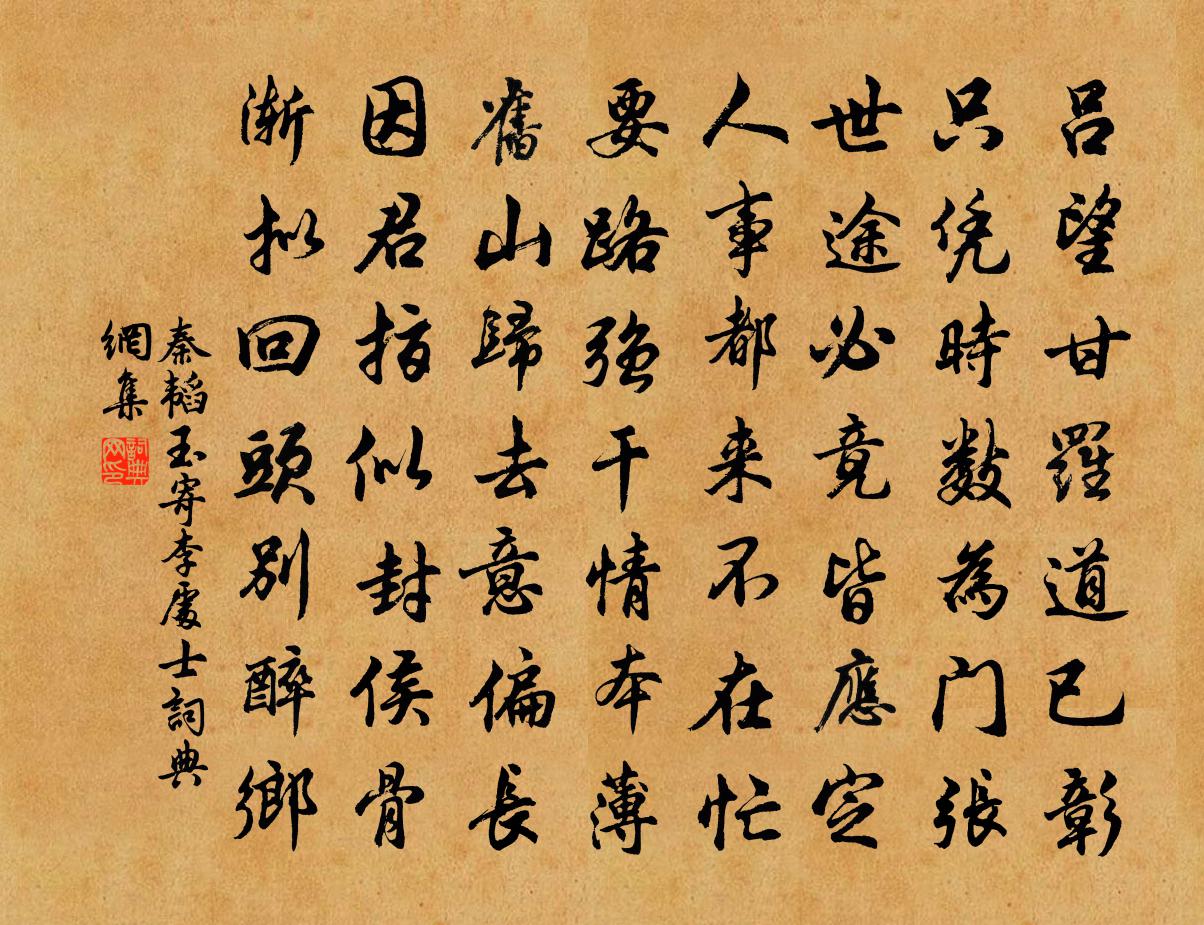 呂望甘羅道已彰
只凭時數為門張
世途必竟皆應定
人事都来不在忙
要路強干情本薄
舊山歸去意偏長
因君指似封侯骨
漸拟回頭別醉鄉
秦韜玉寄李處士詞典
網集
詞典網印